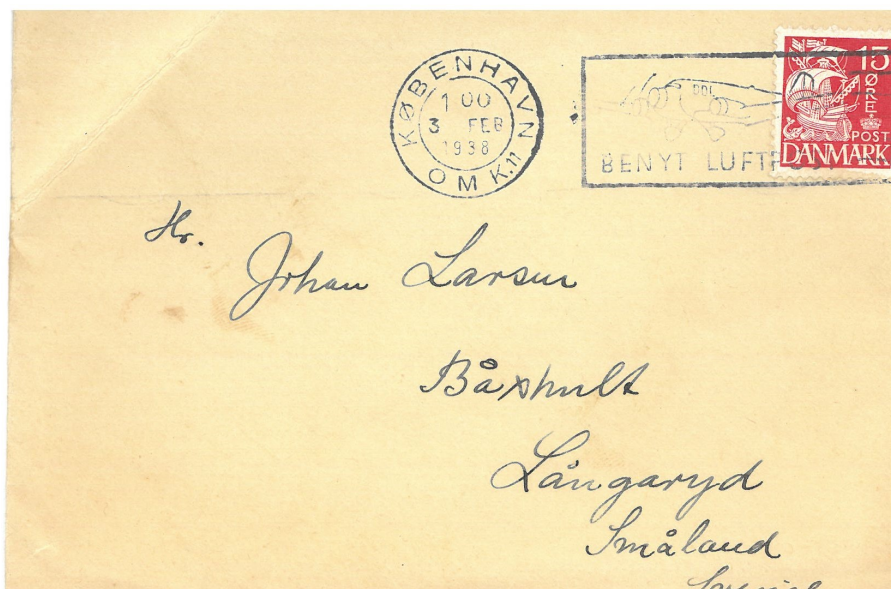 KØBENHAVN
1 00
3 FEB
1938
OMK.11
DDL
BENYT LUFTPOST
15
ØRE
POST
DANMARK
Hr.
Johan Larsen
Båxhult
Långaryd
Småland